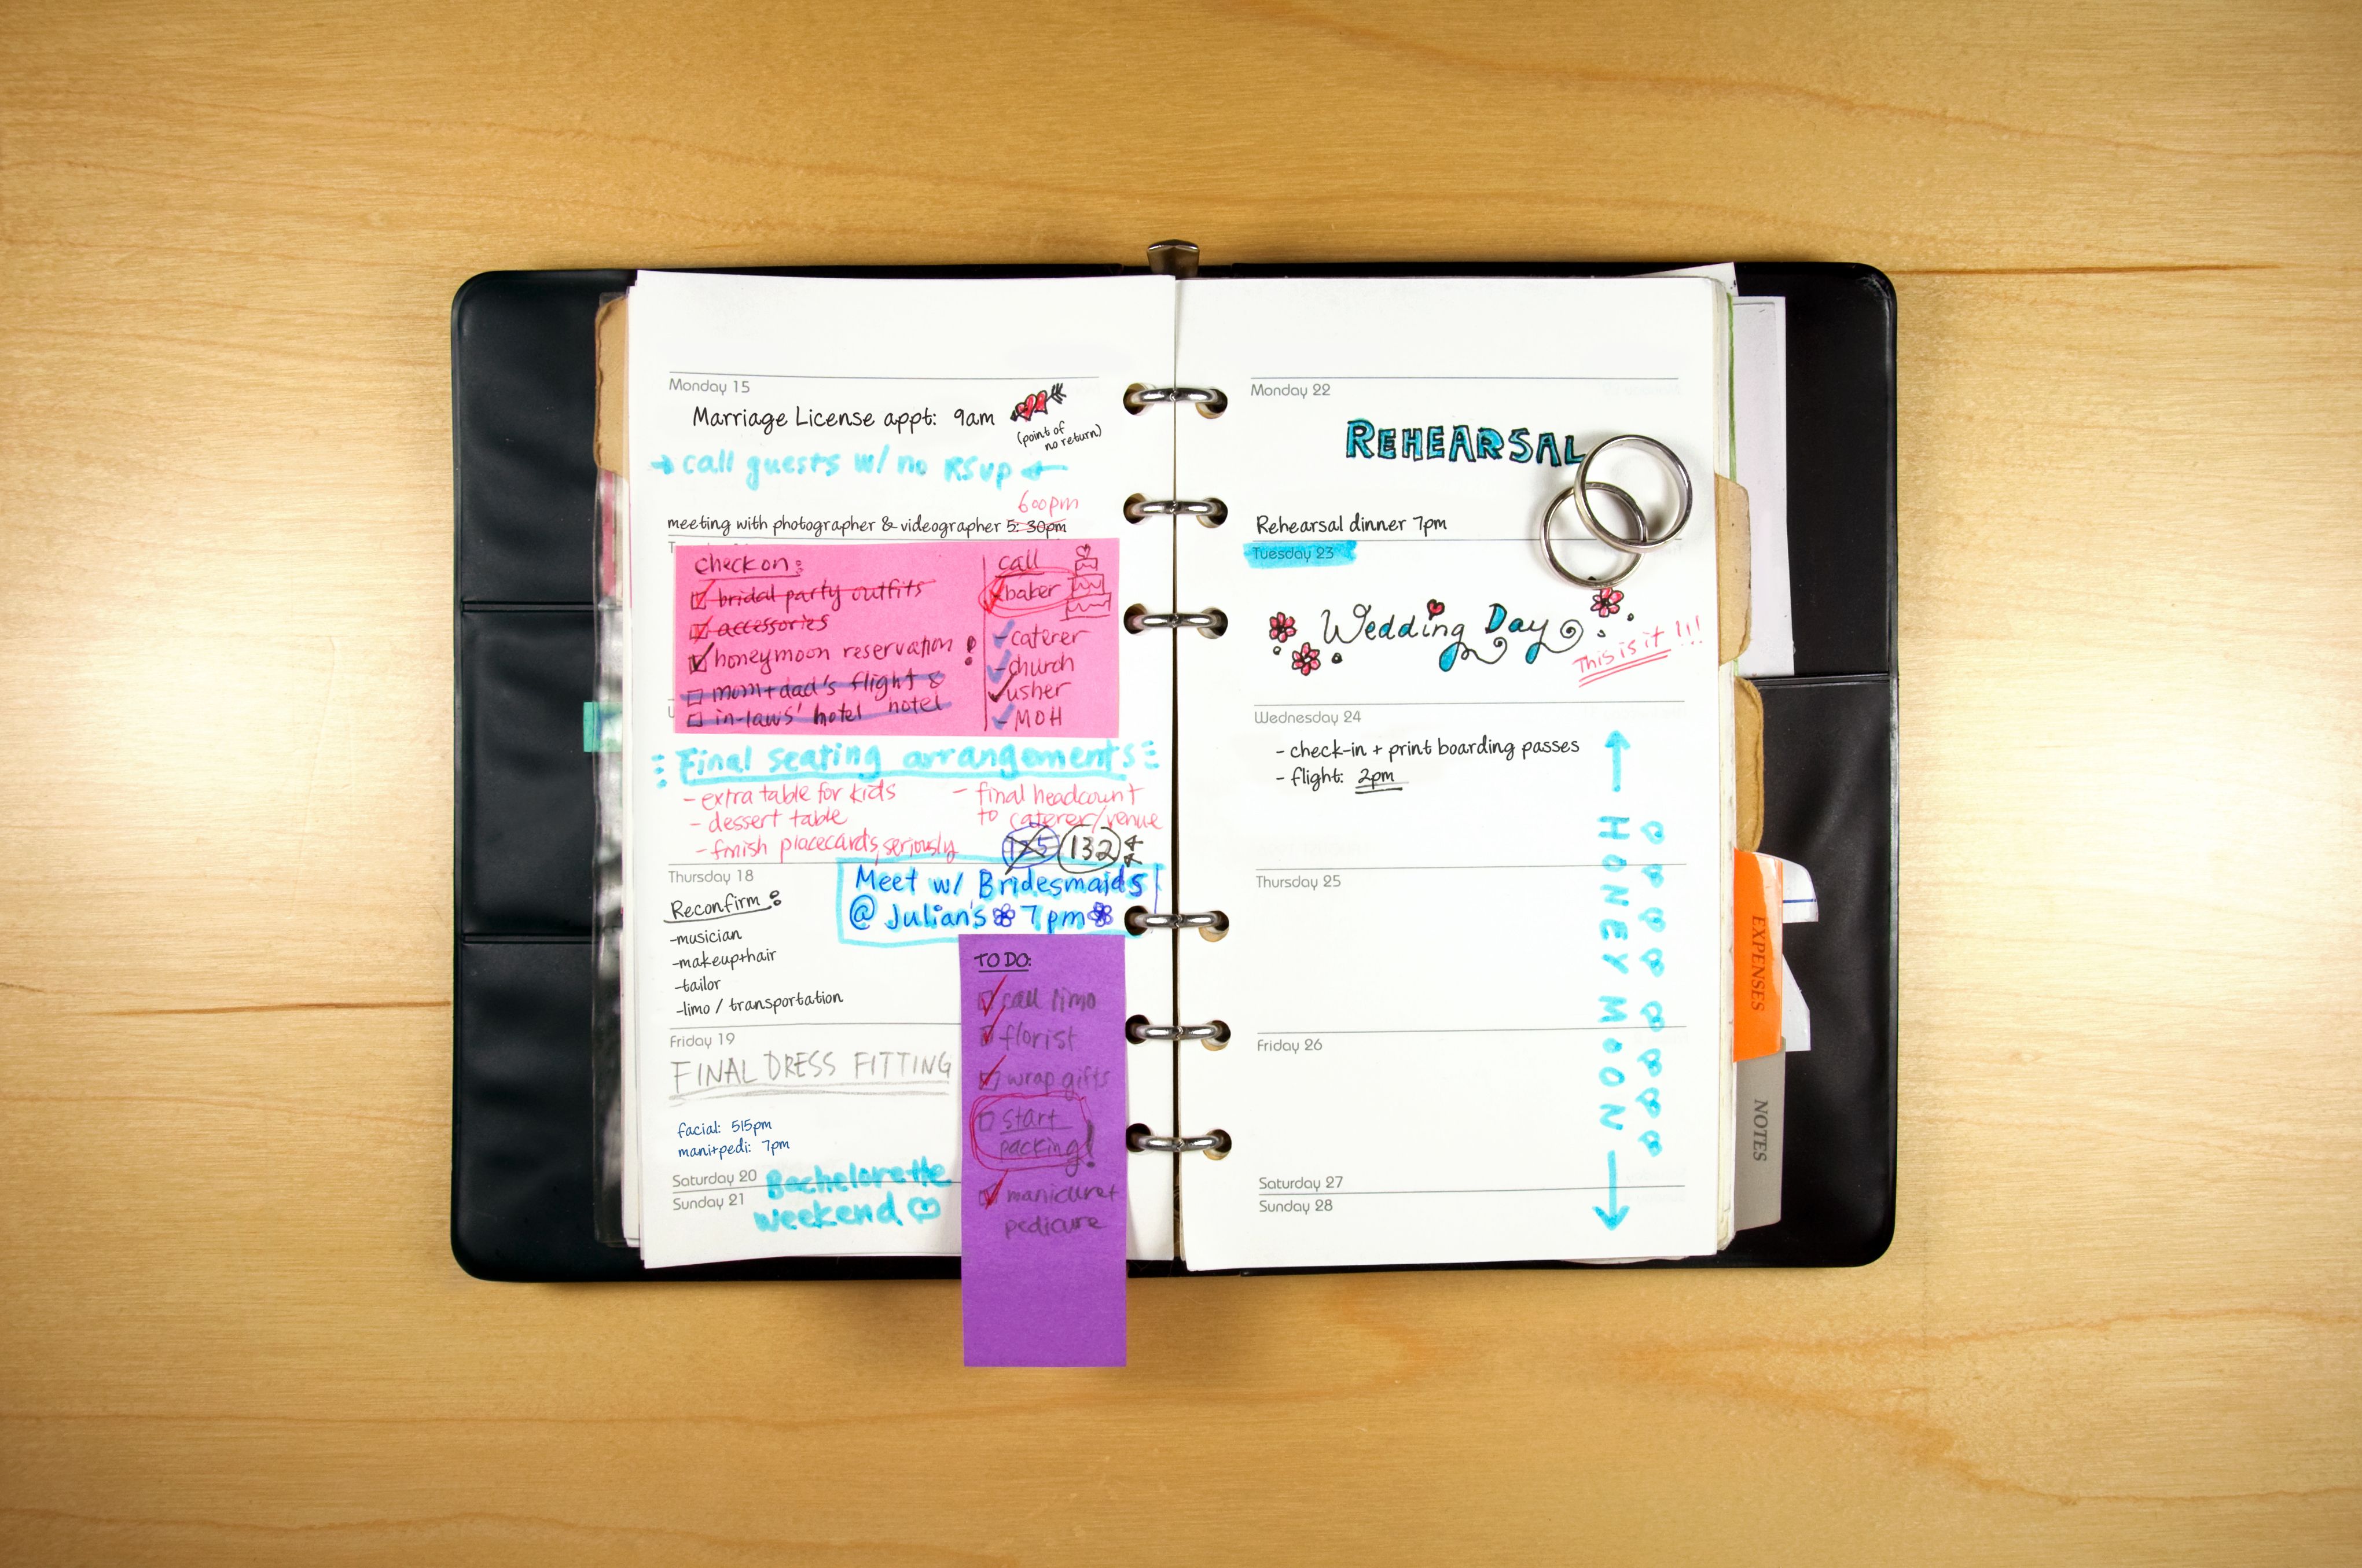 Monday 15
Marriage License appt: 9am
(point of
no return)
call guests w/ no RSVP
600pm
meeting with photographer & videographer 5:30pm
check on:
bridal party outfits
accessories
honeymoon reservation !
mom+dad's flight &
hotel
in-laws' hotel
call
baker
-caterer
-church
usher
-MOH
Final seating arrangements
- extra table for kids
- dessert table
- finish placecards, seriously
- final headcount
to caterer/venue
132
Thursday 18
Reconfirm:
-musician
-makeup+hair
-tailor
-limo / transportation
Meet w/ Bridesmaids
@ Julian's 7pm
TO DO:
call limo
florist
wrap gifts
start
packing!
manicure+
pedicure
Friday 19
FINAL DRESS FITTING
facial: 515pm
mani+pedi: 7pm
Saturday 20
Sunday 21
Bachelorette
weekend
Monday 22
REHEARSAL
Rehearsal dinner 7pm
Tuesday 23
Wedding Day
This is it!!!
Wednesday 24
- check-in + print boarding passes
- flight: 2pm
HONEYMOON
Thursday 25
Friday 26
Saturday 27
Sunday 28
EXPENSES
NOTES